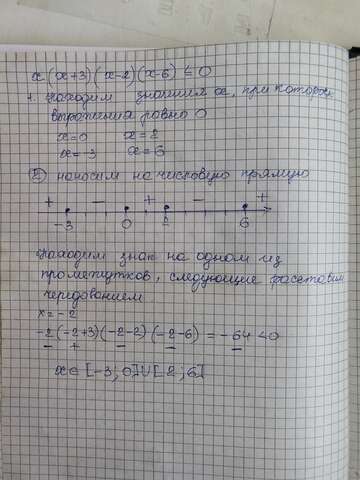 x(x+3)(x-2)(x-6) ≤ 0
1. находим значения x, при которых
выражения равно 0
x=0 x=2
x=-3 x=6
② наносим на числовую прямую
+ - + - +
-3 0 2 6
находим знак на одном из
промежутков, следующие расставим
чередованием
x=-2
-2(-2+3)(-2-2)(-2-6) = -64 <0
- + - - -
x∈[-3;0]∪[2;6]